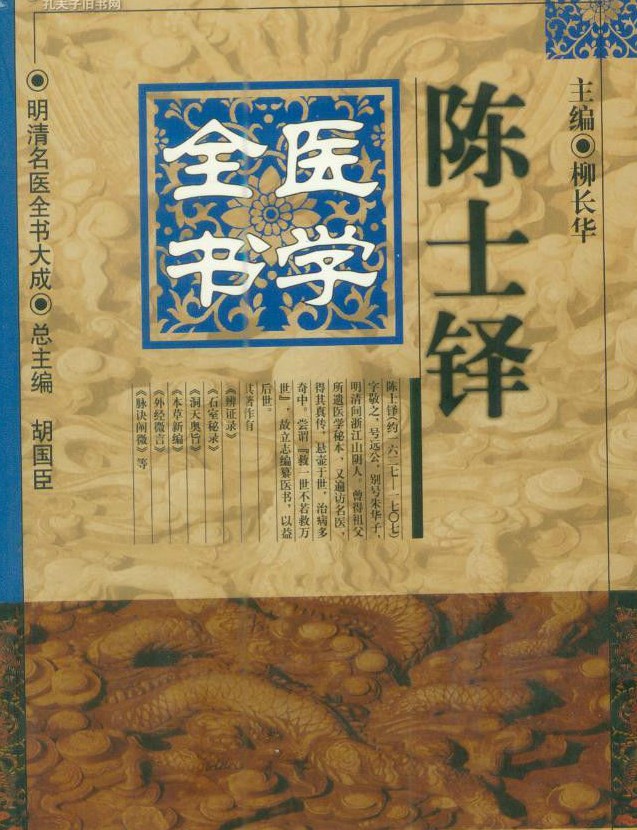 孔夫子旧书网
主编●柳长华
陈士铎
医学
全书
陈士铎(约一六二七—一七〇七)
字敬之,号远公,别号朱华子,
明清间浙江山阴人。曾得祖父
所遗医学秘本,又遍访名医,
得其真传,悬壶于世,治病多
奇中。尝谓『救一世不若救万
世』,故立志编纂医书,以益
后世。
其著作有
《辨证录》
《石室秘录》
《洞天奥旨》
《本草新编》
《外经微言》
《脉诀阐微》等
●明清名医全书大成●总主编 胡国臣